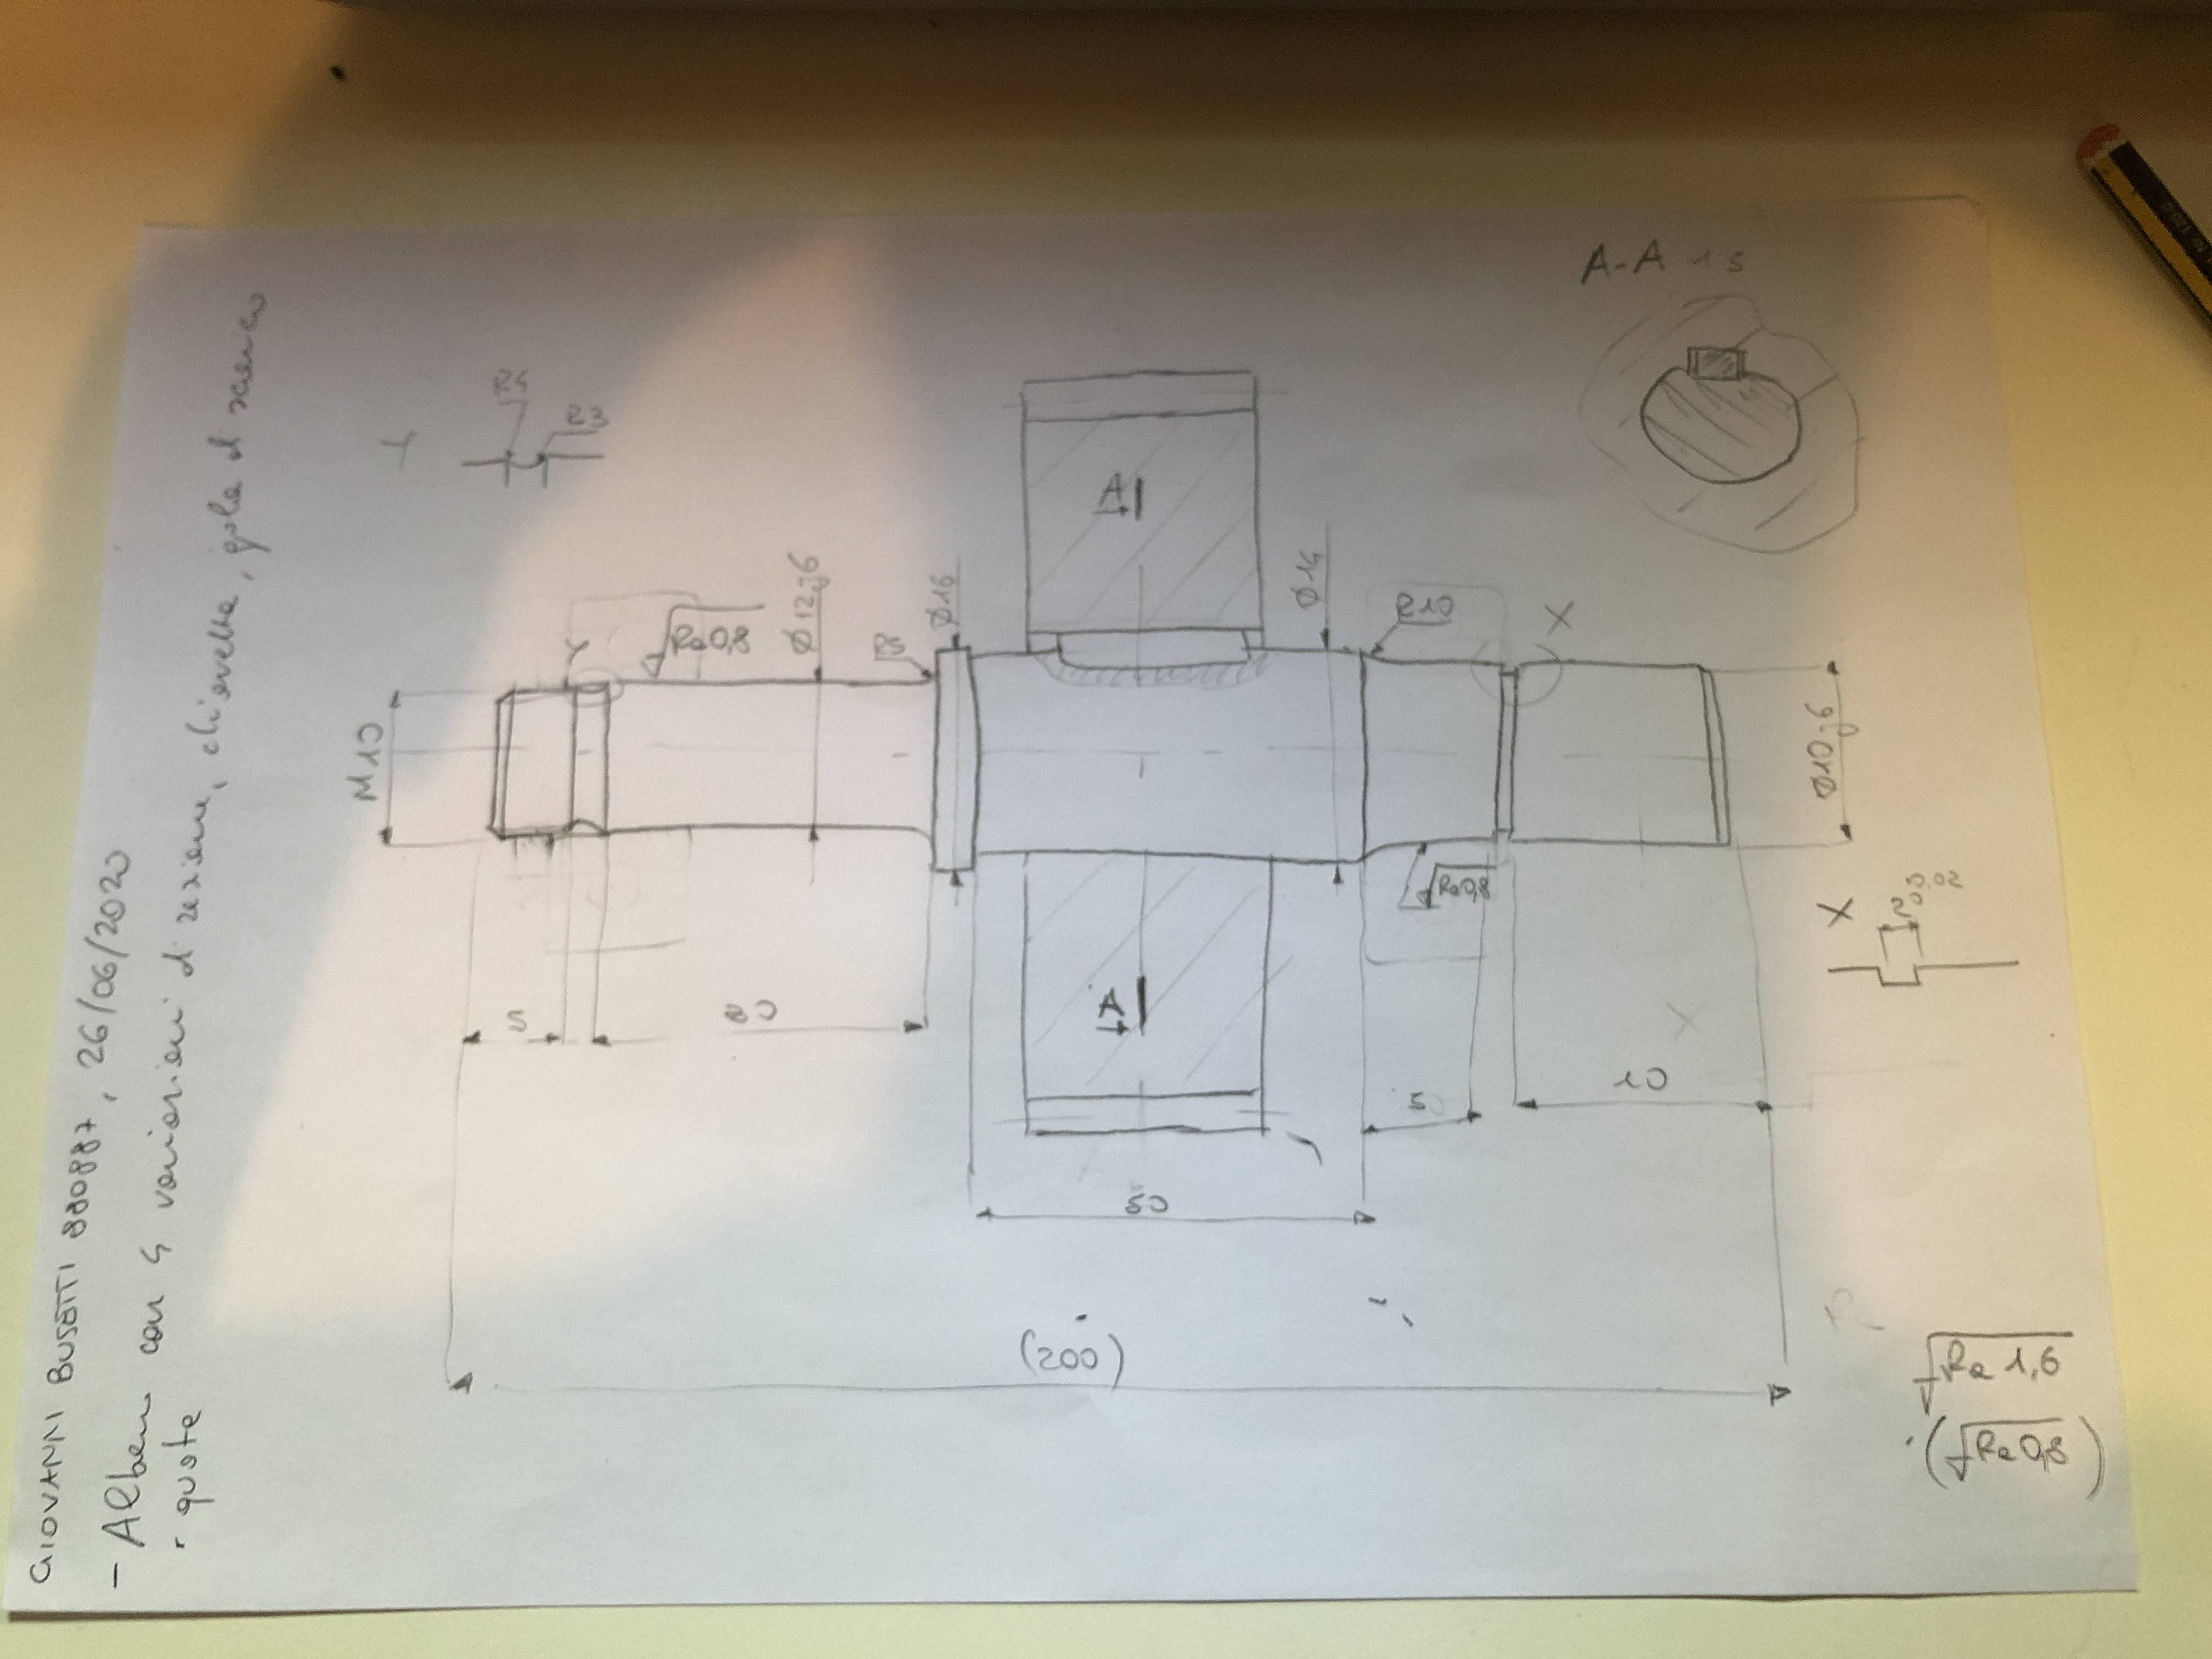 GIOVANNI BUSATTI 880887, 26/06/2020
- Albero con 4 variazioni di sezione, chiavetta, gola di scarico
quote
A-A
R3
Y
Ra 0,8
Ø12 j6
R5
Ø16
A
Ø14
R10
X
M10
Ø10 j6
Ra 0,8
X
A
5
80
5
10
50
(200)
Ra 1,6
(Ra 0,8)